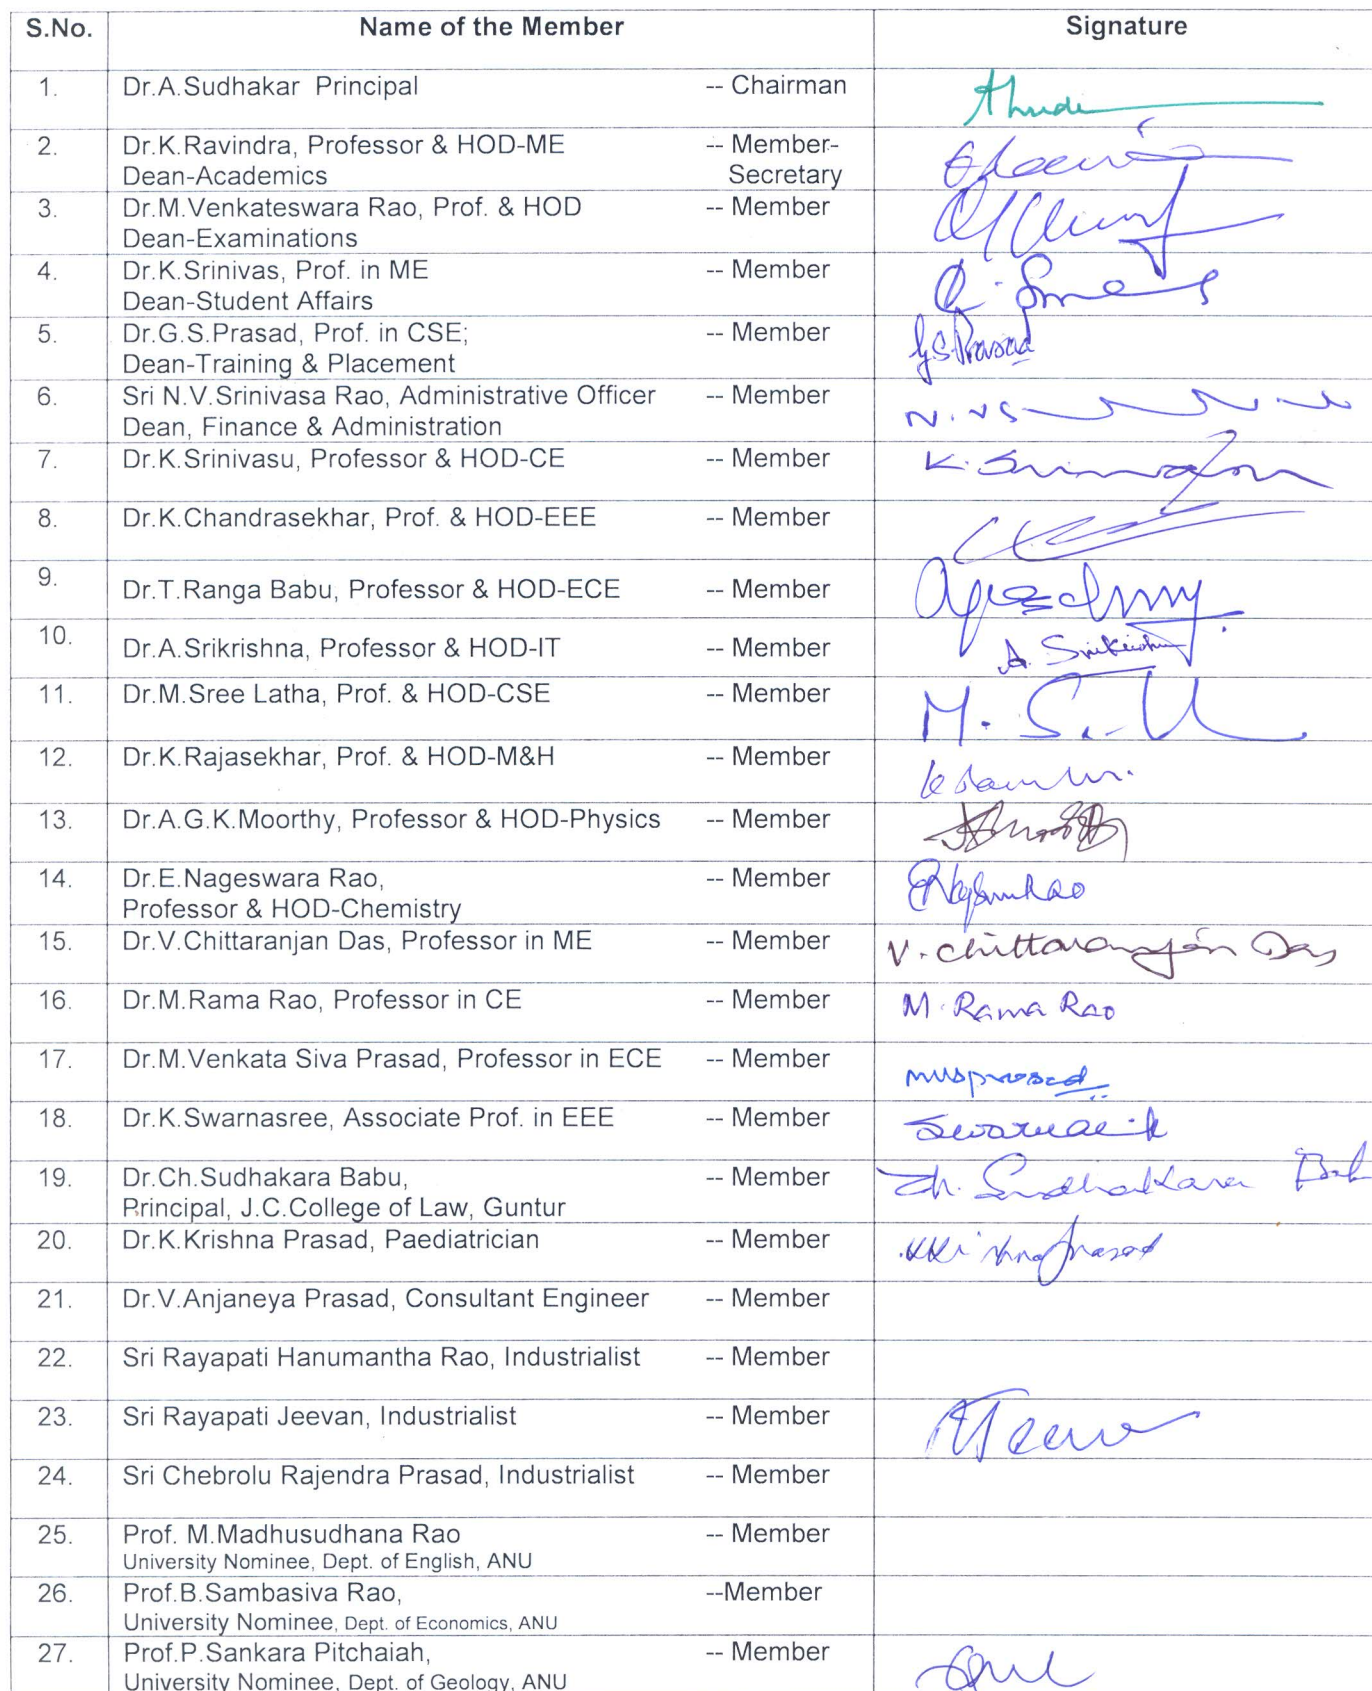 S.No. Name of the Member Signature
1. Dr.A.Sudhakar Principal -- Chairman
2. Dr.K.Ravindra, Professor & HOD-ME -- Member-
Dean-Academics Secretary
3. Dr.M.Venkateswara Rao, Prof. & HOD -- Member
Dean-Examinations
4. Dr.K.Srinivas, Prof. in ME -- Member
Dean-Student Affairs
5. Dr.G.S.Prasad, Prof. in CSE; -- Member G.S.Prasad
Dean-Training & Placement
6. Sri N.V.Srinivasa Rao, Administrative Officer -- Member
Dean, Finance & Administration
7. Dr.K.Srinivasu, Professor & HOD-CE -- Member
8. Dr.K.Chandrasekhar, Prof. & HOD-EEE -- Member
9. Dr.T.Ranga Babu, Professor & HOD-ECE -- Member
10. Dr.A.Srikrishna, Professor & HOD-IT -- Member A. Srikrishna
11. Dr.M.Sree Latha, Prof. & HOD-CSE -- Member
12. Dr.K.Rajasekhar, Prof. & HOD-M&H -- Member
13. Dr.A.G.K.Moorthy, Professor & HOD-Physics -- Member
14. Dr.E.Nageswara Rao, -- Member
Professor & HOD-Chemistry
15. Dr.V.Chittaranjan Das, Professor in ME -- Member V. Chittaranjan Das
16. Dr.M.Rama Rao, Professor in CE -- Member M. Rama Rao
17. Dr.M.Venkata Siva Prasad, Professor in ECE -- Member mvsprasad
18. Dr.K.Swarnasree, Associate Prof. in EEE -- Member
19. Dr.Ch.Sudhakara Babu, -- Member Ch. Sudhakara Bab
Principal, J.C.College of Law, Guntur
20. Dr.K.Krishna Prasad, Paediatrician -- Member KKrishnaprasad
21. Dr.V.Anjaneya Prasad, Consultant Engineer -- Member
22. Sri Rayapati Hanumantha Rao, Industrialist -- Member
23. Sri Rayapati Jeevan, Industrialist -- Member
24. Sri Chebrolu Rajendra Prasad, Industrialist -- Member
25. Prof. M.Madhusudhana Rao -- Member
University Nominee, Dept. of English, ANU
26. Prof.B.Sambasiva Rao, --Member
University Nominee, Dept. of Economics, ANU
27. Prof.P.Sankara Pitchaiah, -- Member
University Nominee, Dept. of Geology, ANU